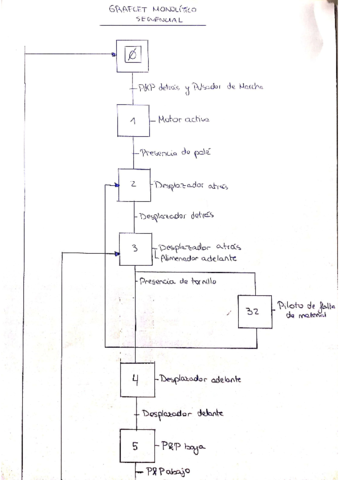 GRAFCET MONOLÍTICO
SECUENCIAL
0
P&P detrás y Pulsador de Marcha
1
Motor activo
Presencia de palé
2
Desplazador atrás
Desplazador detrás
3
Desplazador atrás
Alimenador adelante
Presencia de tornillo
32
Piloto de falta
de material
4
Desplazador adelante
Desplazador delante
5
P&P baja
P&P abajo